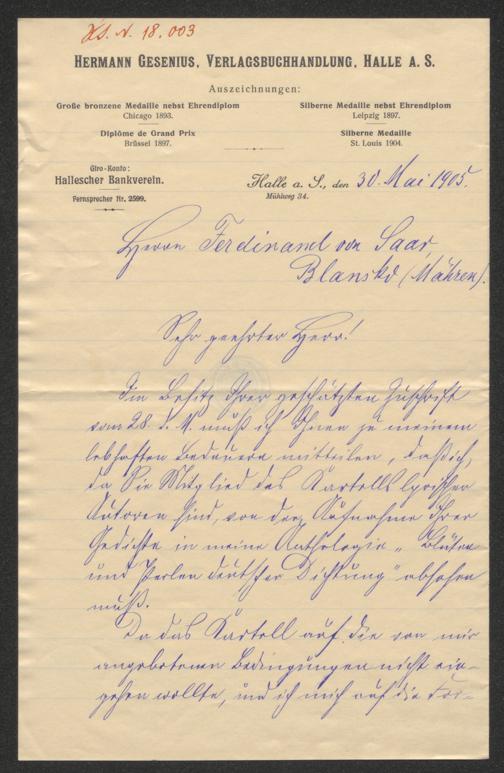 H.I.N. 18.003
HERMANN GESENIUS, VERLAGSBUCHHANDLUNG, HALLE A. S.
Auszeichnungen:
Große bronzene Medaille nebst Ehrendiplom
Chicago 1893.
Diplôme de Grand Prix
Brüssel 1897.
Silberne Medaille nebst Ehrendiplom
Leipzig 1897.
Silberne Medaille
St. Louis 1904.
Giro-Konto:
Hallescher Bankverein.
Fernsprecher Nr. 2599.
Halle a. S., den 30. Mai 1905.
Mühlweg 34.
Herrn Ferdinand von Saar,
Blansko (Mähren).
Sehr geehrter Herr!
Im Besitz Ihrer geschätzten Zuschrift
vom 28. d. M. muß ich Ihnen zu meinem
lebhaften Bedauern mitteilen, daß ich,
da Sie Mitglied des Kartells lyrischer
Autoren sind, von der Aufnahme Ihrer
Gedichte in meine Anthologie „Blüten
und Perlen deutscher Dichtung" absehen
muß.
Da das Kartell auf die von mir
angebotenen Bedingungen nicht ein-
gehen wollte, und ich mich auf die For-